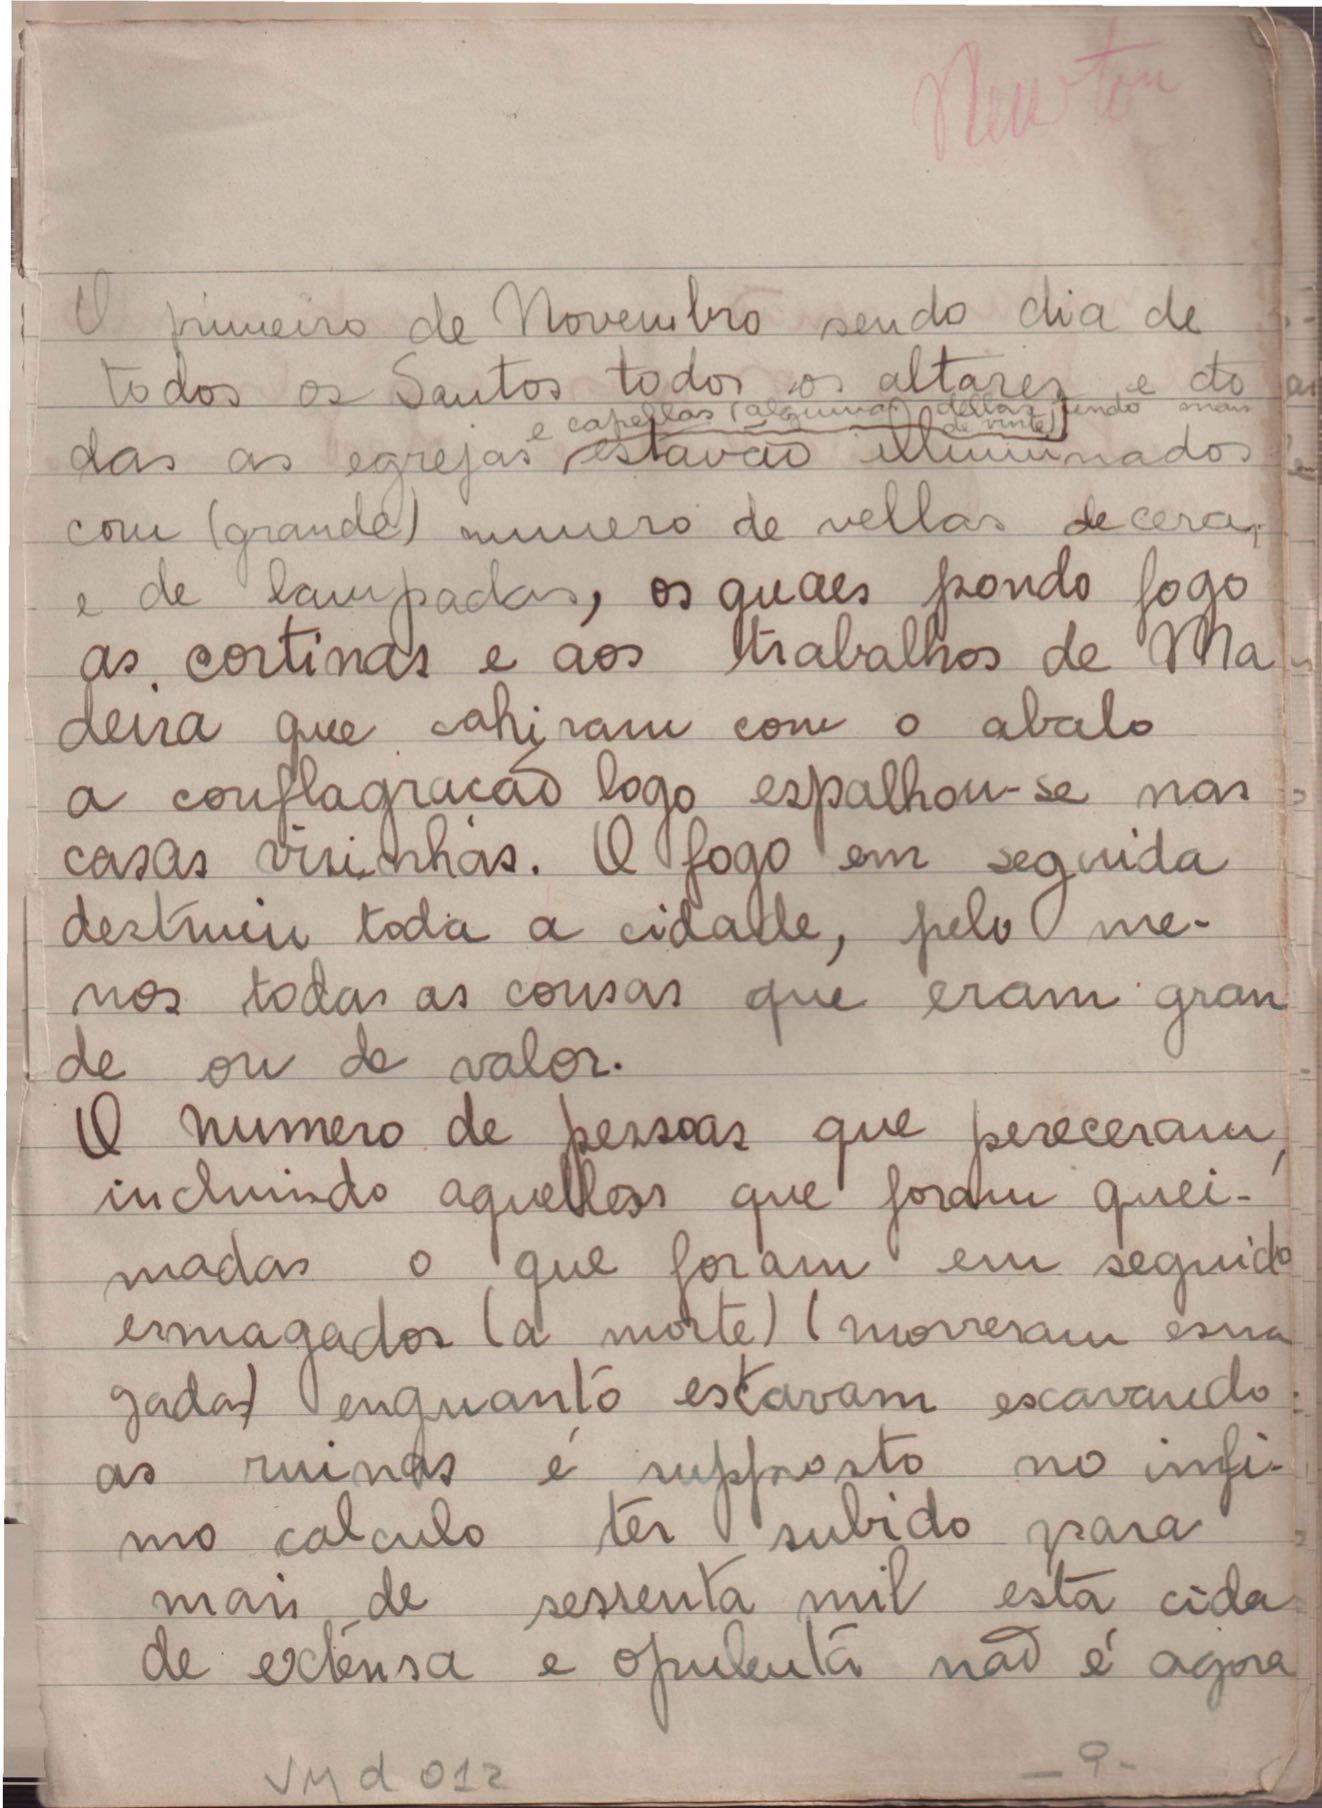 Newton
O primeiro de Novembro sendo dia de
todos os Santos todos os altares e to
e capellas (algumas dellas tendo mais
de vinte)
das as egrejas estavão illuminados
com (grande) numero de vellas de cera,
e de lampadas, os quaes pondo fogo
as cortinas e aos trabalhos de Ma
deira que cahiram com o abalo
a conflagracão logo espalhou-se nas
casas visinhas. O fogo em seguida
destruiu toda a cidade, pelo me-
nos todas as cousas que eram gran
de ou de valor.
O numero de pessoas que pereceram,
incluindo aquelles que foram quei-
madas o que foram em seguida
esmagados (a morte) (morreram esma
gadas) enquanto estavam escavando
as ruinas é supposto no infi-
mo calculo ter subido para
mais de sessenta mil esta cida
de extensa e opulenta não é agora
VMd 012
- 9 -